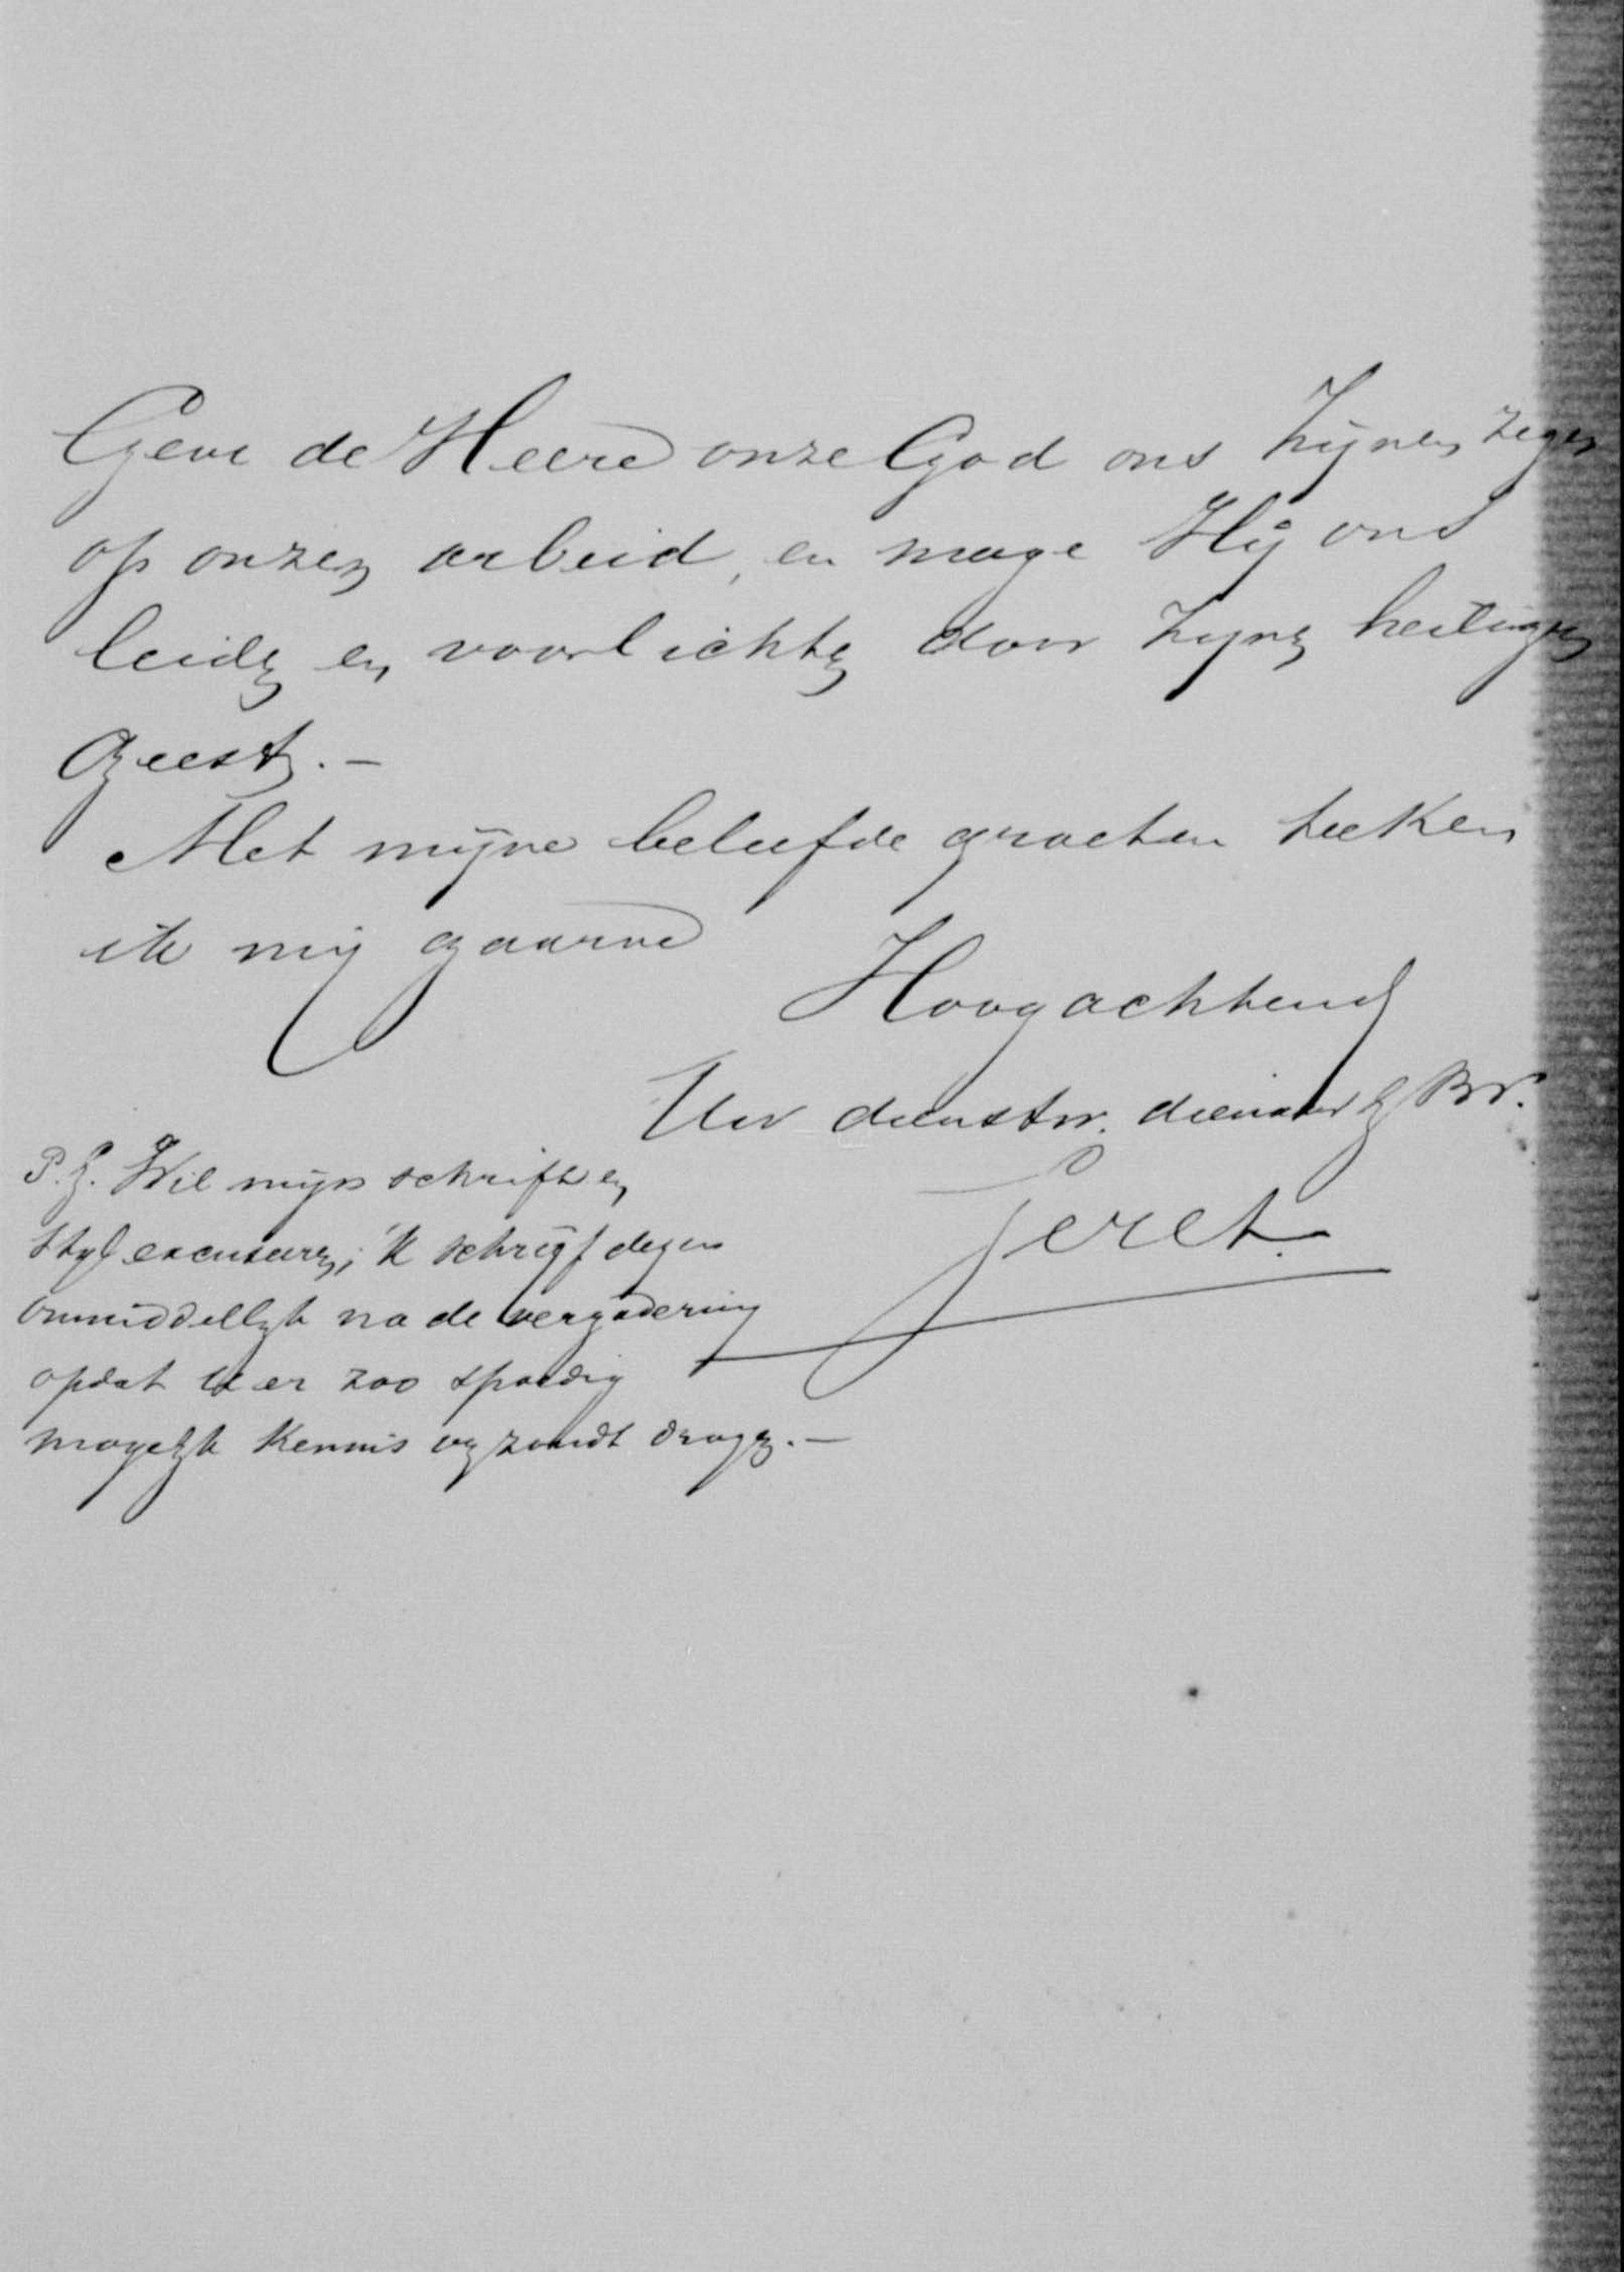 Geve de Heere onze God ons Zijnen zegen
op onzen arbeid, en moge Hij ons
leiden en voorlichten door Zijnen heiligen
Geest. -
Met mijne beleefde groeten teeken
ik mij gaarne
Hoogachtend
Uw dienstw. dienaar & Br.
P.S. Wil mijn schrift en
Styl excuseren; 'k schrijf dezen
onmiddellyk na de vergadering
opdat U er zoo spoedig
mogelyk kennis van dragen. -